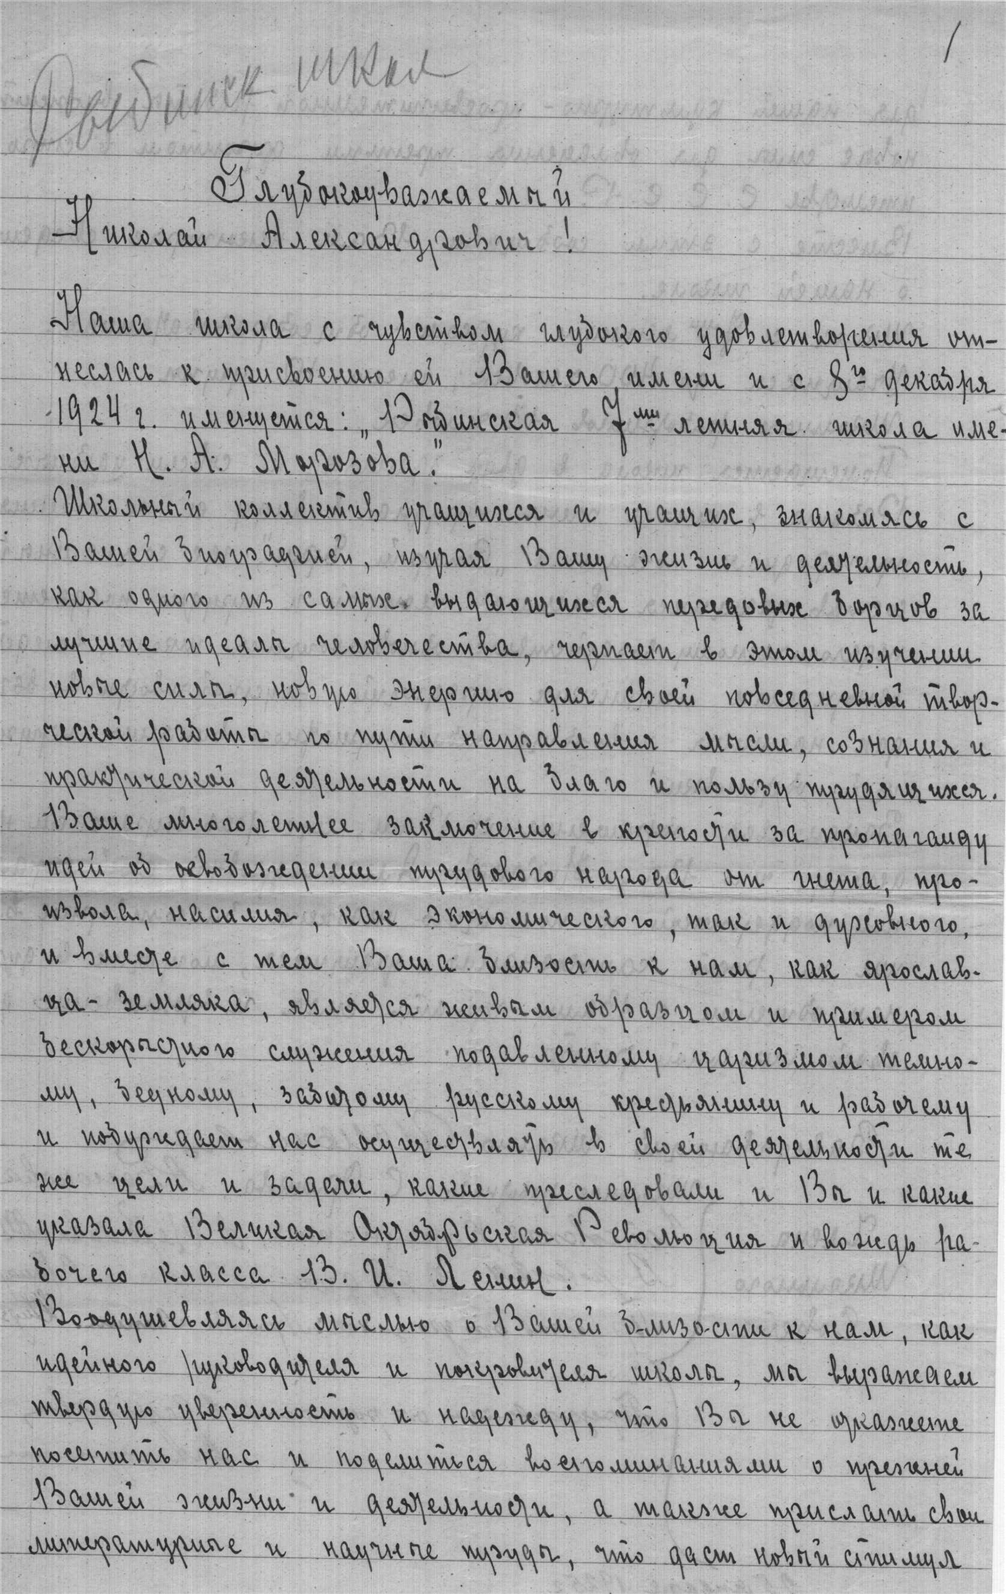 1
Рыбинск школ
Глубокоуважаемый
Николай Александрович!
Наша школа с чувством глубокого удовлетворения от-
неслась к присвоению ей Вашего имени и с 8го декабря
1924 г. именуется: „Рыбинская 7ми летняя школа име-
ни Н. А. Морозова."
Школьный коллектив учащихся и учащих, знакомясь с
Вашей биографией, изучая Вашу жизнь и деятельность,
как одного из самых выдающихся передовых борцов за
лучшие идеалы человечества, черпает в этом изучении
новые силы, новую энергию для своей повседневной твор-
ческой работы по пути направления мысли, сознания и
практической деятельности на благо и пользу трудящихся.
Ваше многолетнее заключение в крепости за пропаганду
идей об освобождении трудового народа от гнета, про-
извола, насилия, как экономического, так и духовного,
и вместе с тем Ваша близость к нам, как ярослав-
ца-земляка, является живым образцом и примером
бескорыстного служения подавленному царизмом темно-
му, бедному, забитому русскому крестьянину и рабочему
и побуждает нас осуществлять в своей деятельности те
же цели и задачи, какие преследовали и Вы и какие
указала Великая Октябрьская Революция и вождь ра-
бочего класса В. И. Ленин.
Воодушевляясь мыслью о Вашей близости к нам, как
идейного руководителя и покровителя школы, мы выражаем
твердую уверенность и надежду, что Вы не откажете
посетить нас и поделиться воспоминаниями о прежней
Вашей жизни и деятельности, а также прислать свои
литературные и научные труды, что даст новый стимул